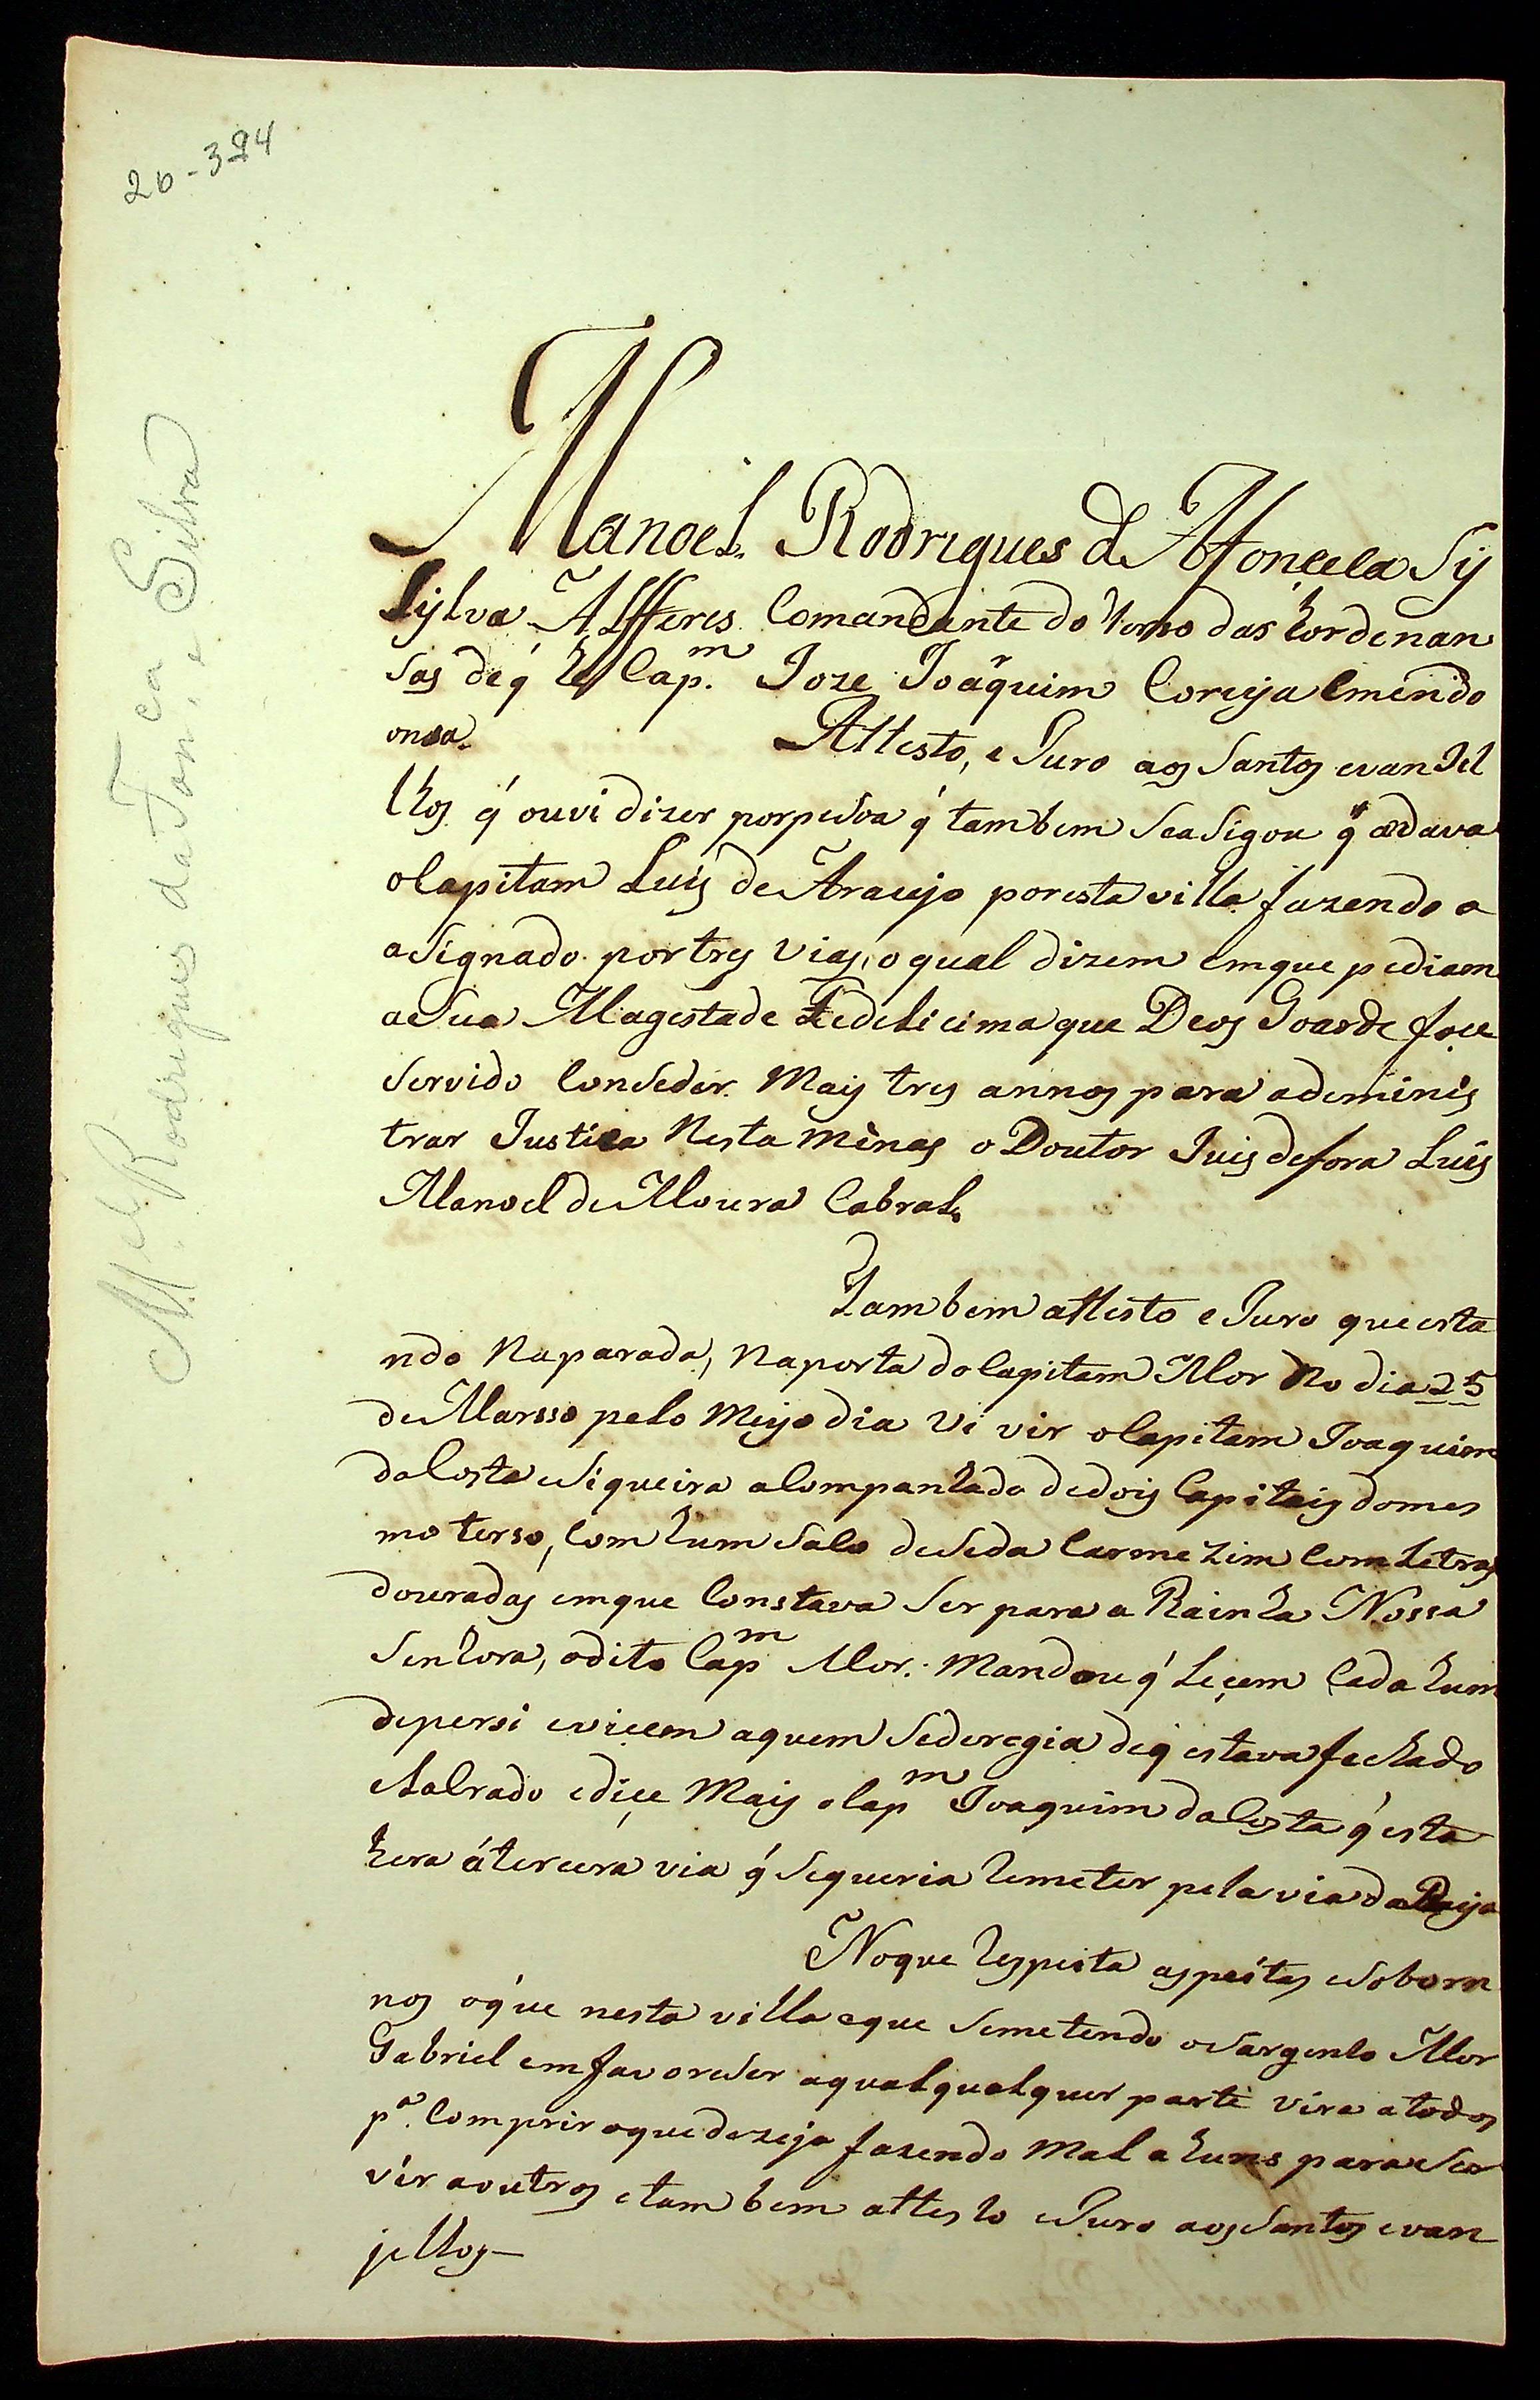 26-324
M.el Rodrigues da Fon.ca e Silva
Manoel Rodrigues d Affonceca Sy
Sylva Alfferes Comandante do terso das hordenan
sas de q' he Cap.m Joze Joaquim Correya e mendo
onsa. Attesto, e Juro aos Santos evanJel
lhos q' ouvi dizer por pesoa q' tambem se asignou q' ādava
o Capitam Luis de Araujo por esta villa fazendo a
asignado por tres vias, o qual dizem em que pediam
a Sua Magestade Fedelicima que Deos Goarde foce
servido Conseder mais tres annos paraademinis
trar Justica Nesta minas o Doutor Juis de fora Luis
Manoel de Moura Cabral.
Tambem attesto e Juro que esta
ndo na parada, na porta do Capitam Mor No dia 25
de Marsso pelo Meyo dia Vi vir o Capitam Joaquim
da Costa Siqueira aCompanhado de dois Capitais do mes
mo terso, Com hum saco de seda Carmezim Com Letras
douradas em que Constava ser para a Rainha Nossa
Senhora, o dito Cap.m Mor. Mandou q' Leçem Cada hum
de per si e viçem a quem se deregia de q' estava fechado
e Lalrado e diçe Mais o Cap.m Joaquim da Costa q' esta
hera á terceira via q' se queria Remeter pela via da
No que Respeita as peitas e soborn
nos o que nesta villa e que Semetendo o Sargento Mor
Gabriel em favoreser a qual qualquer parte vira a todos
p.a Comprir o que dezeja fazendo mal a huns para ser
vir a outros e tambem attesto e Juro aos Santos evan
jellos—